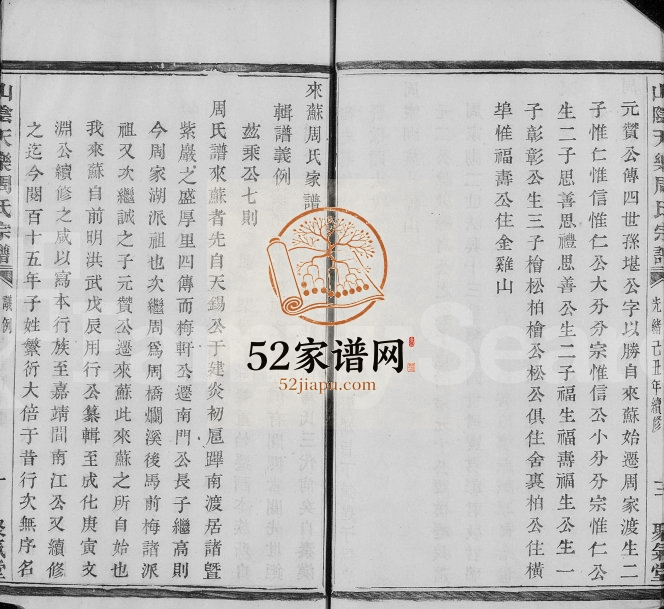 元贊公傳四世孫堪公字以勝自來蘇始遷周家渡生二
子惟仁惟信惟仁公大分分宗惟信公小分分宗惟仁公
生二子思善思禮思善公生二子福生福壽福生公生一
子彭彰公生三子檜松柏檜公松公俱住舍裏柏公住橫
埠惟福壽公住金雞山
山陰天樂周氏宗譜
光緒己丑年續修
三
聚氣堂
來蘇周氏家譜
輯譜義例
玆乘公七則
周氏譜來蘇者先自天錫公于建炎初扈蹕南渡居諸暨
紫巖之盛厚里四傳而梅軒公遷南門公長子繼高則
今周家湖派祖也次繼周爲周橋爛溪後馬前梅諸派
祖又次繼誠之子元贊公遷來蘇此來蘇之所自始也
我來蘇自前明洪武戊辰用行公纂輯至成化庚寅文
淵公續修之咸以寫本行族至嘉靖間南江公又續修
之迄今閱百十五年子姓繁衍大倍于昔行次無序名
山陰天樂周氏宗譜
議例
一
聚氣堂
52家谱网
52jiapu.com